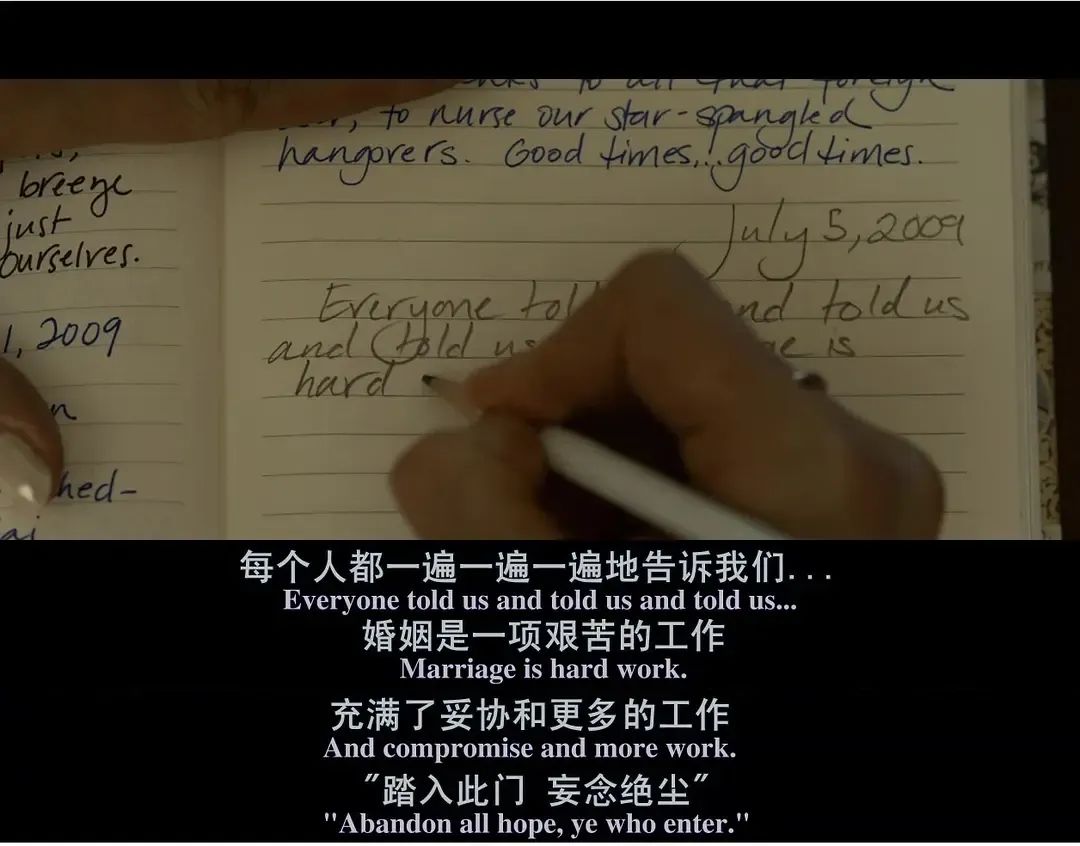 breeze
just
ourselves.
1, 2009
hed-
to all that foreign
to nurse our star-spangled
hangovers. Good times... good times.
July 5, 2009
Everyone told us
and told us is
hard
每个人都一遍一遍一遍地告诉我们...
Everyone told us and told us and told us...
婚姻是一项艰苦的工作
Marriage is hard work.
充满了妥协和更多的工作
And compromise and more work.
"踏入此门 妄念绝尘"
"Abandon all hope, ye who enter."